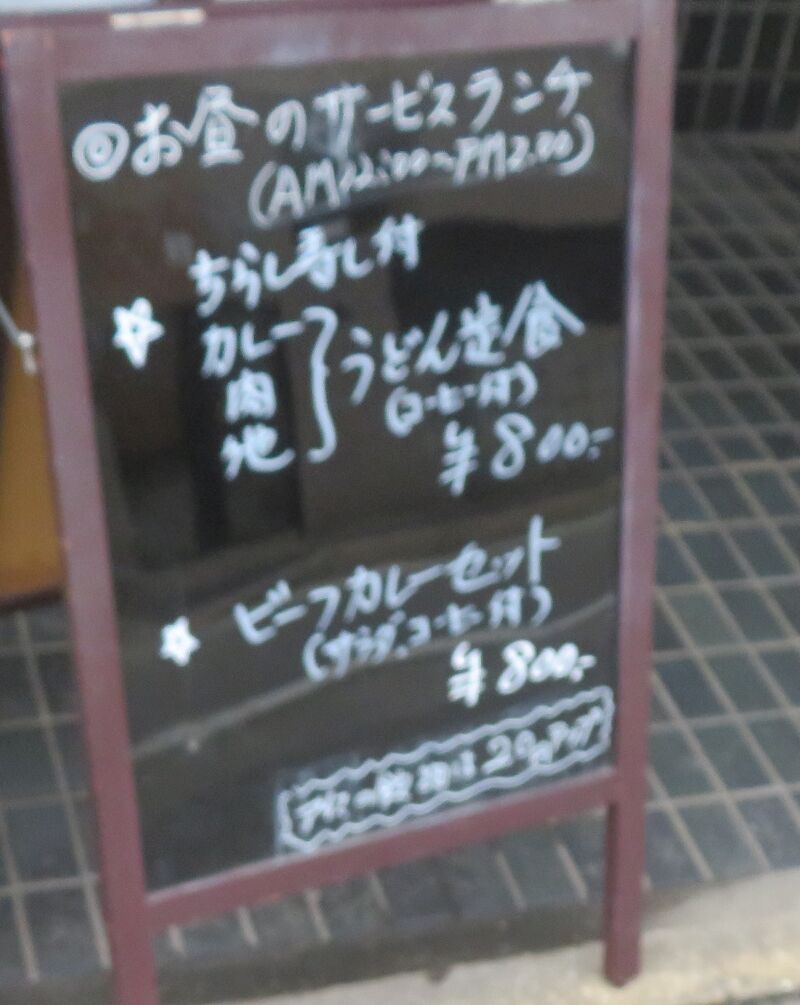 ◎お昼のサービスランチ
(AM12:00~PM2.00)
ちらし寿し付
☆カレー
肉
他
うどん定食
(コーヒー付)
¥800.-
☆ビーフカレーセット
(サラダ、コーヒー付)
¥800.-
の飲物は
アップ